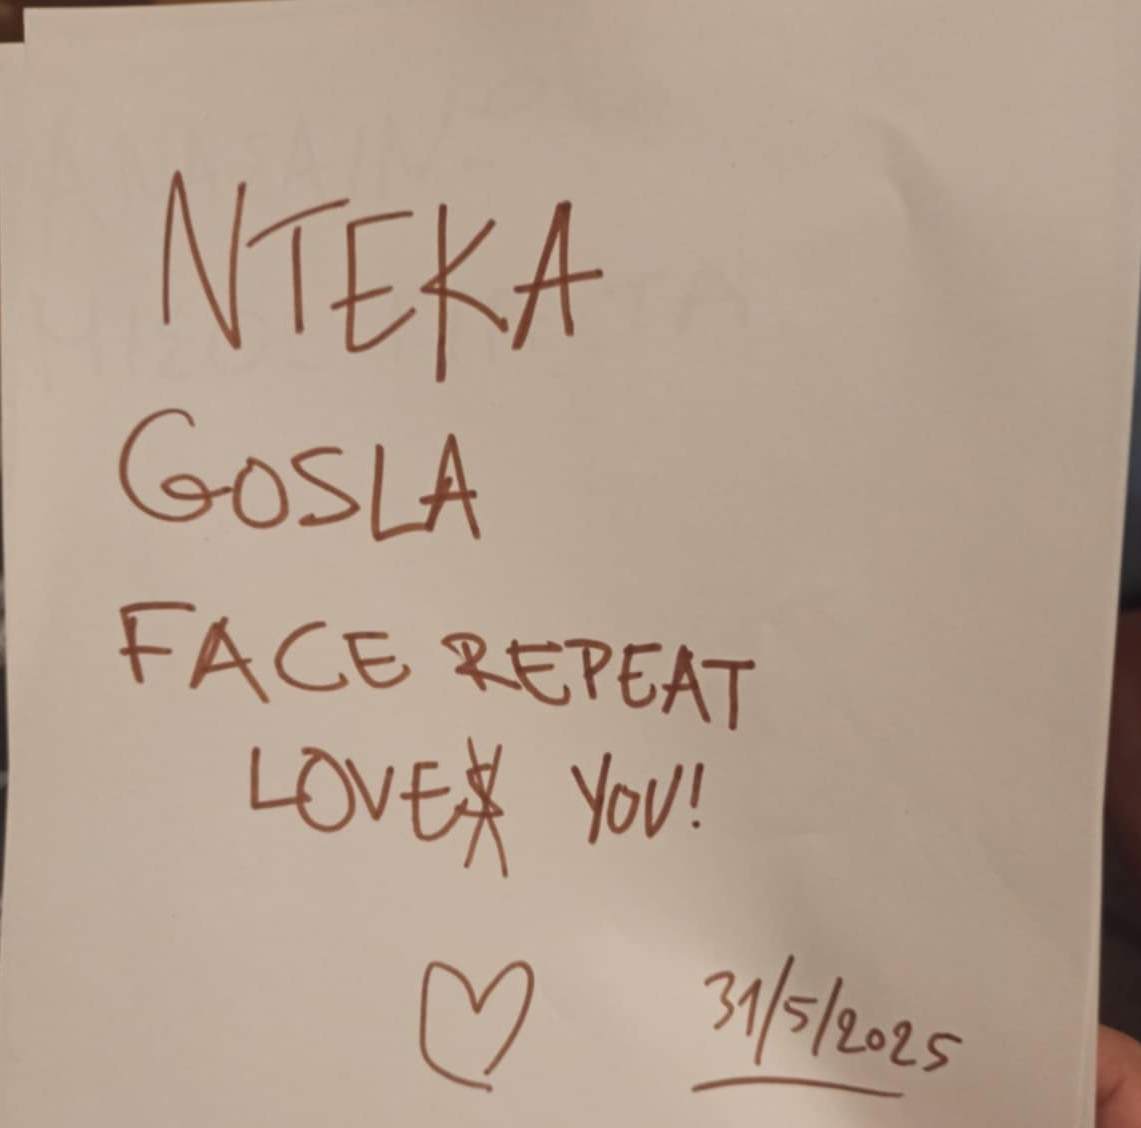 NTEKA
GOSLA
FACE REPEAT
LOVE YOU!
31/5/2025